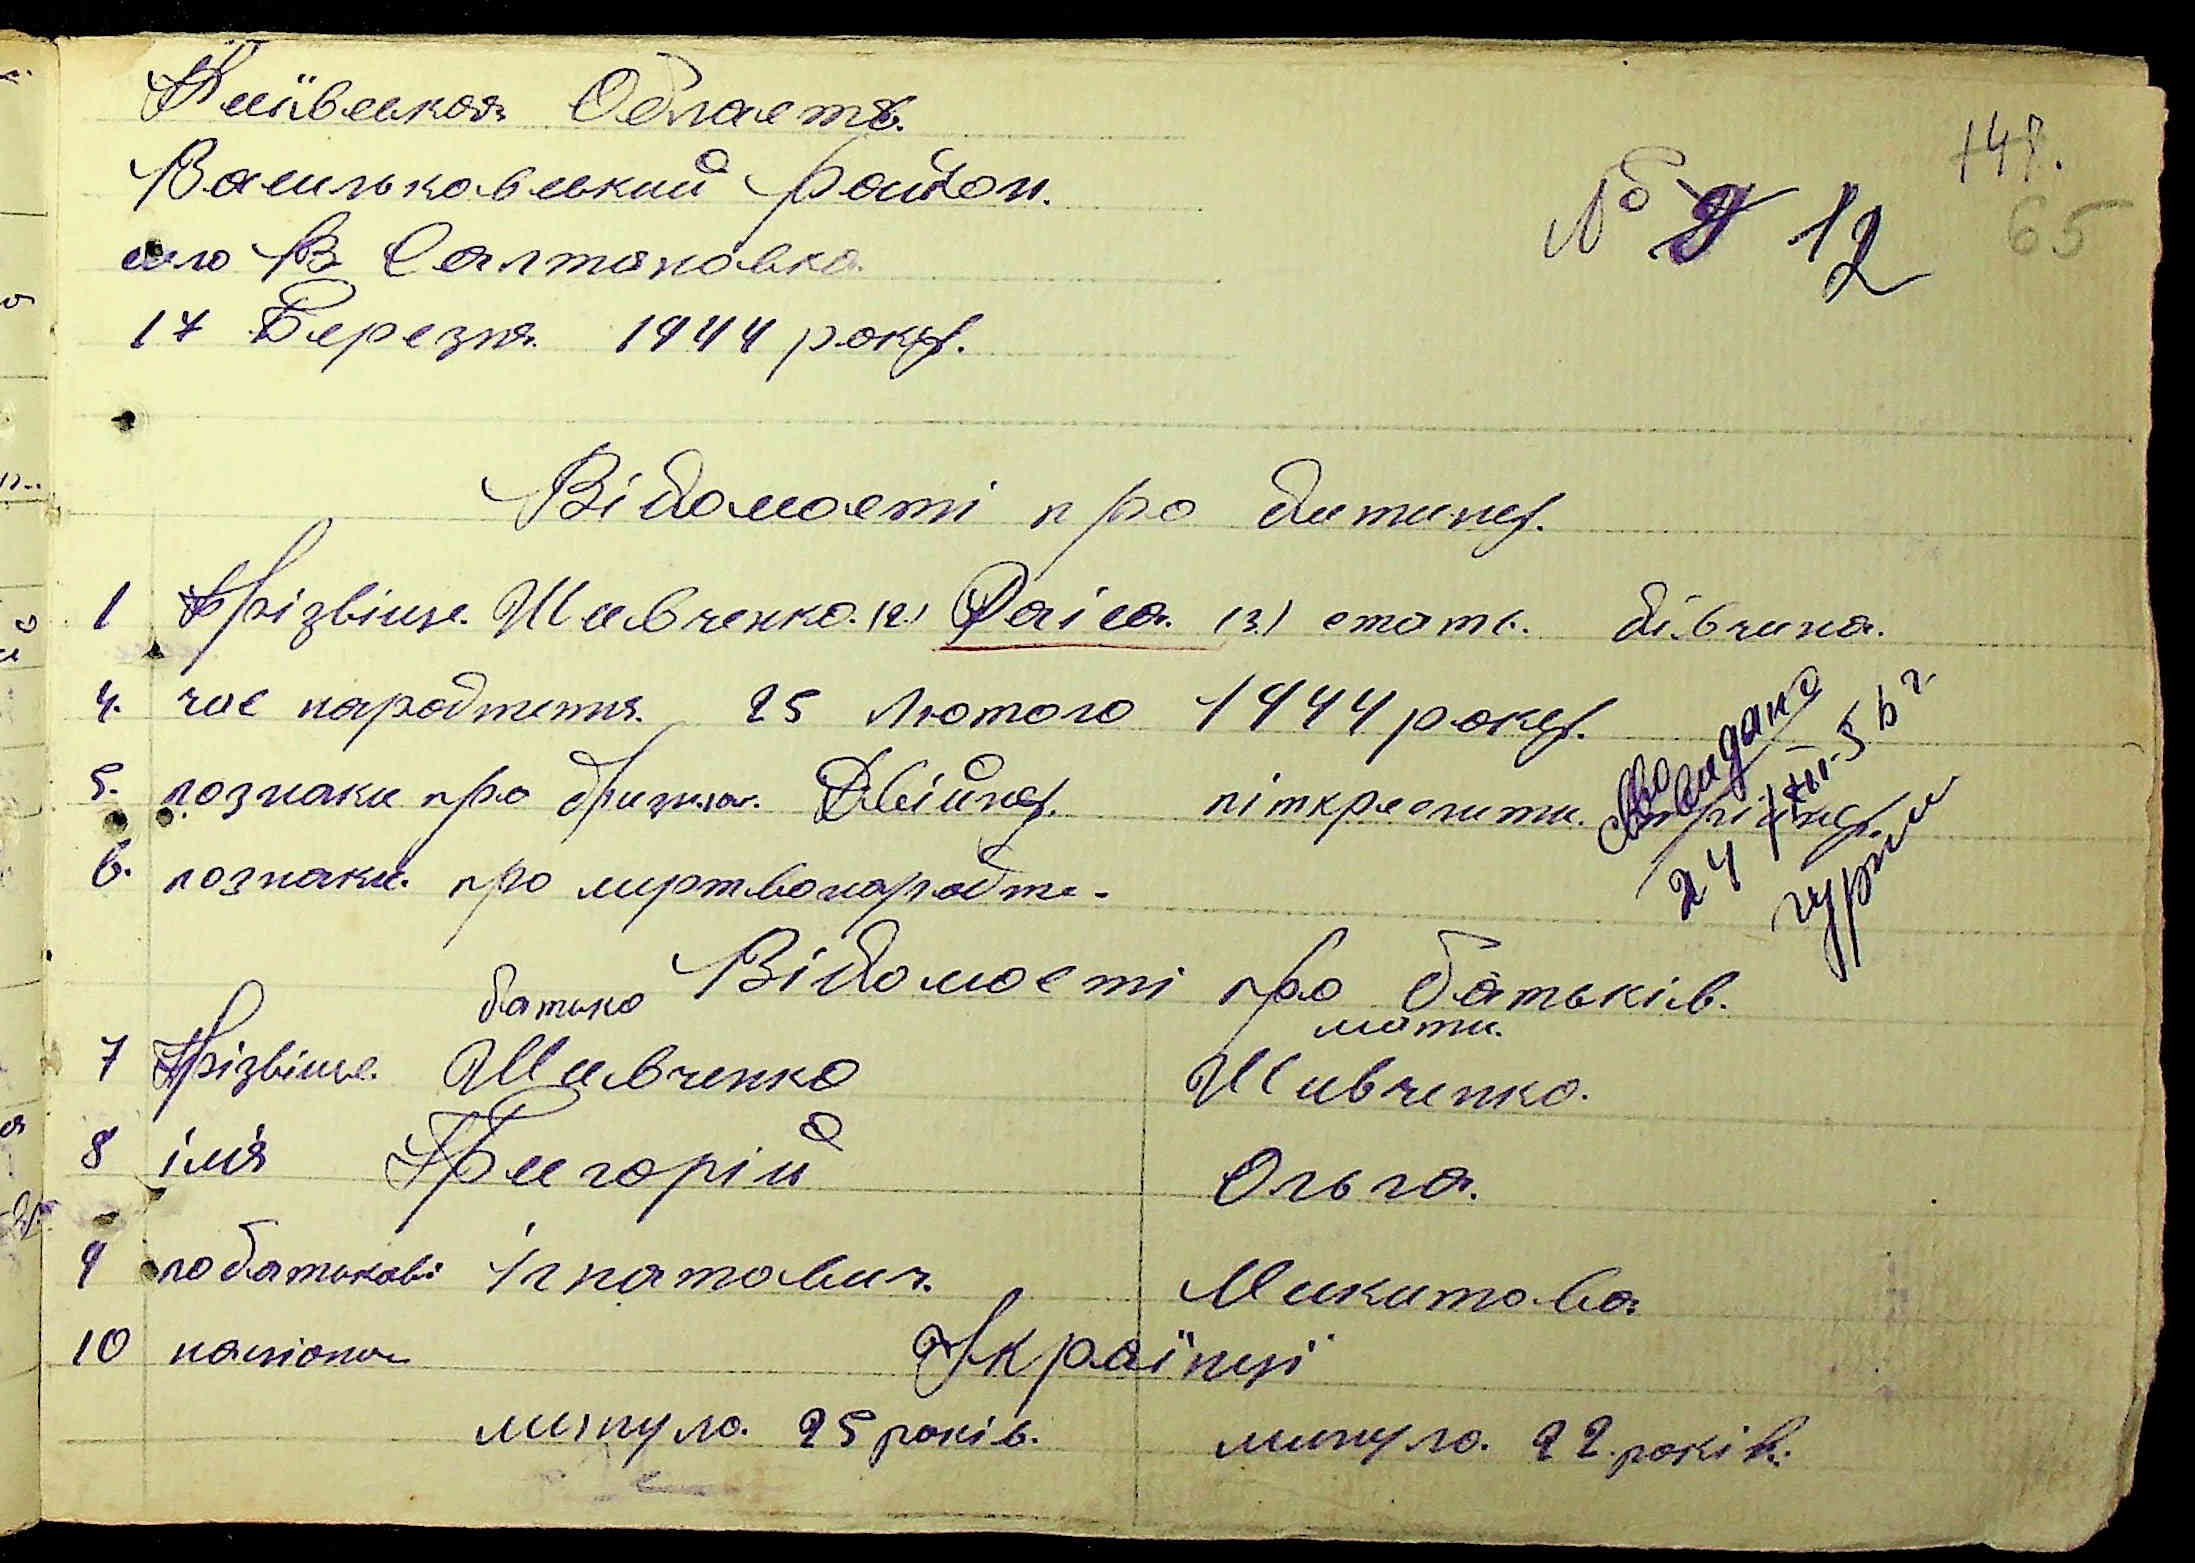 Київська Область.
Васильковський район.
село В Салтановка
№ 9 12
148.
65
17 Березня 1944 року.
Відомості про дитину.
1 Прізвіще. Шевченко. (2.) Раіса. (3.) стать. дівчина.
4. час народження. 25 Лютого 1944 року.
5. познаки про близня. Двійну. піткреслити. трійну.
6. познаки. про мертвонародже-
Сввидано
24/XII-56 г.
Відомості про батьків.
батько мати.
7 Прізвіще. Шевченко Шевченко.
8 імя Григорій Ольга.
9 побатькові Ігнатович. Микитова
10 націона Українці
минуло. 25 років. минуло. 22. років.